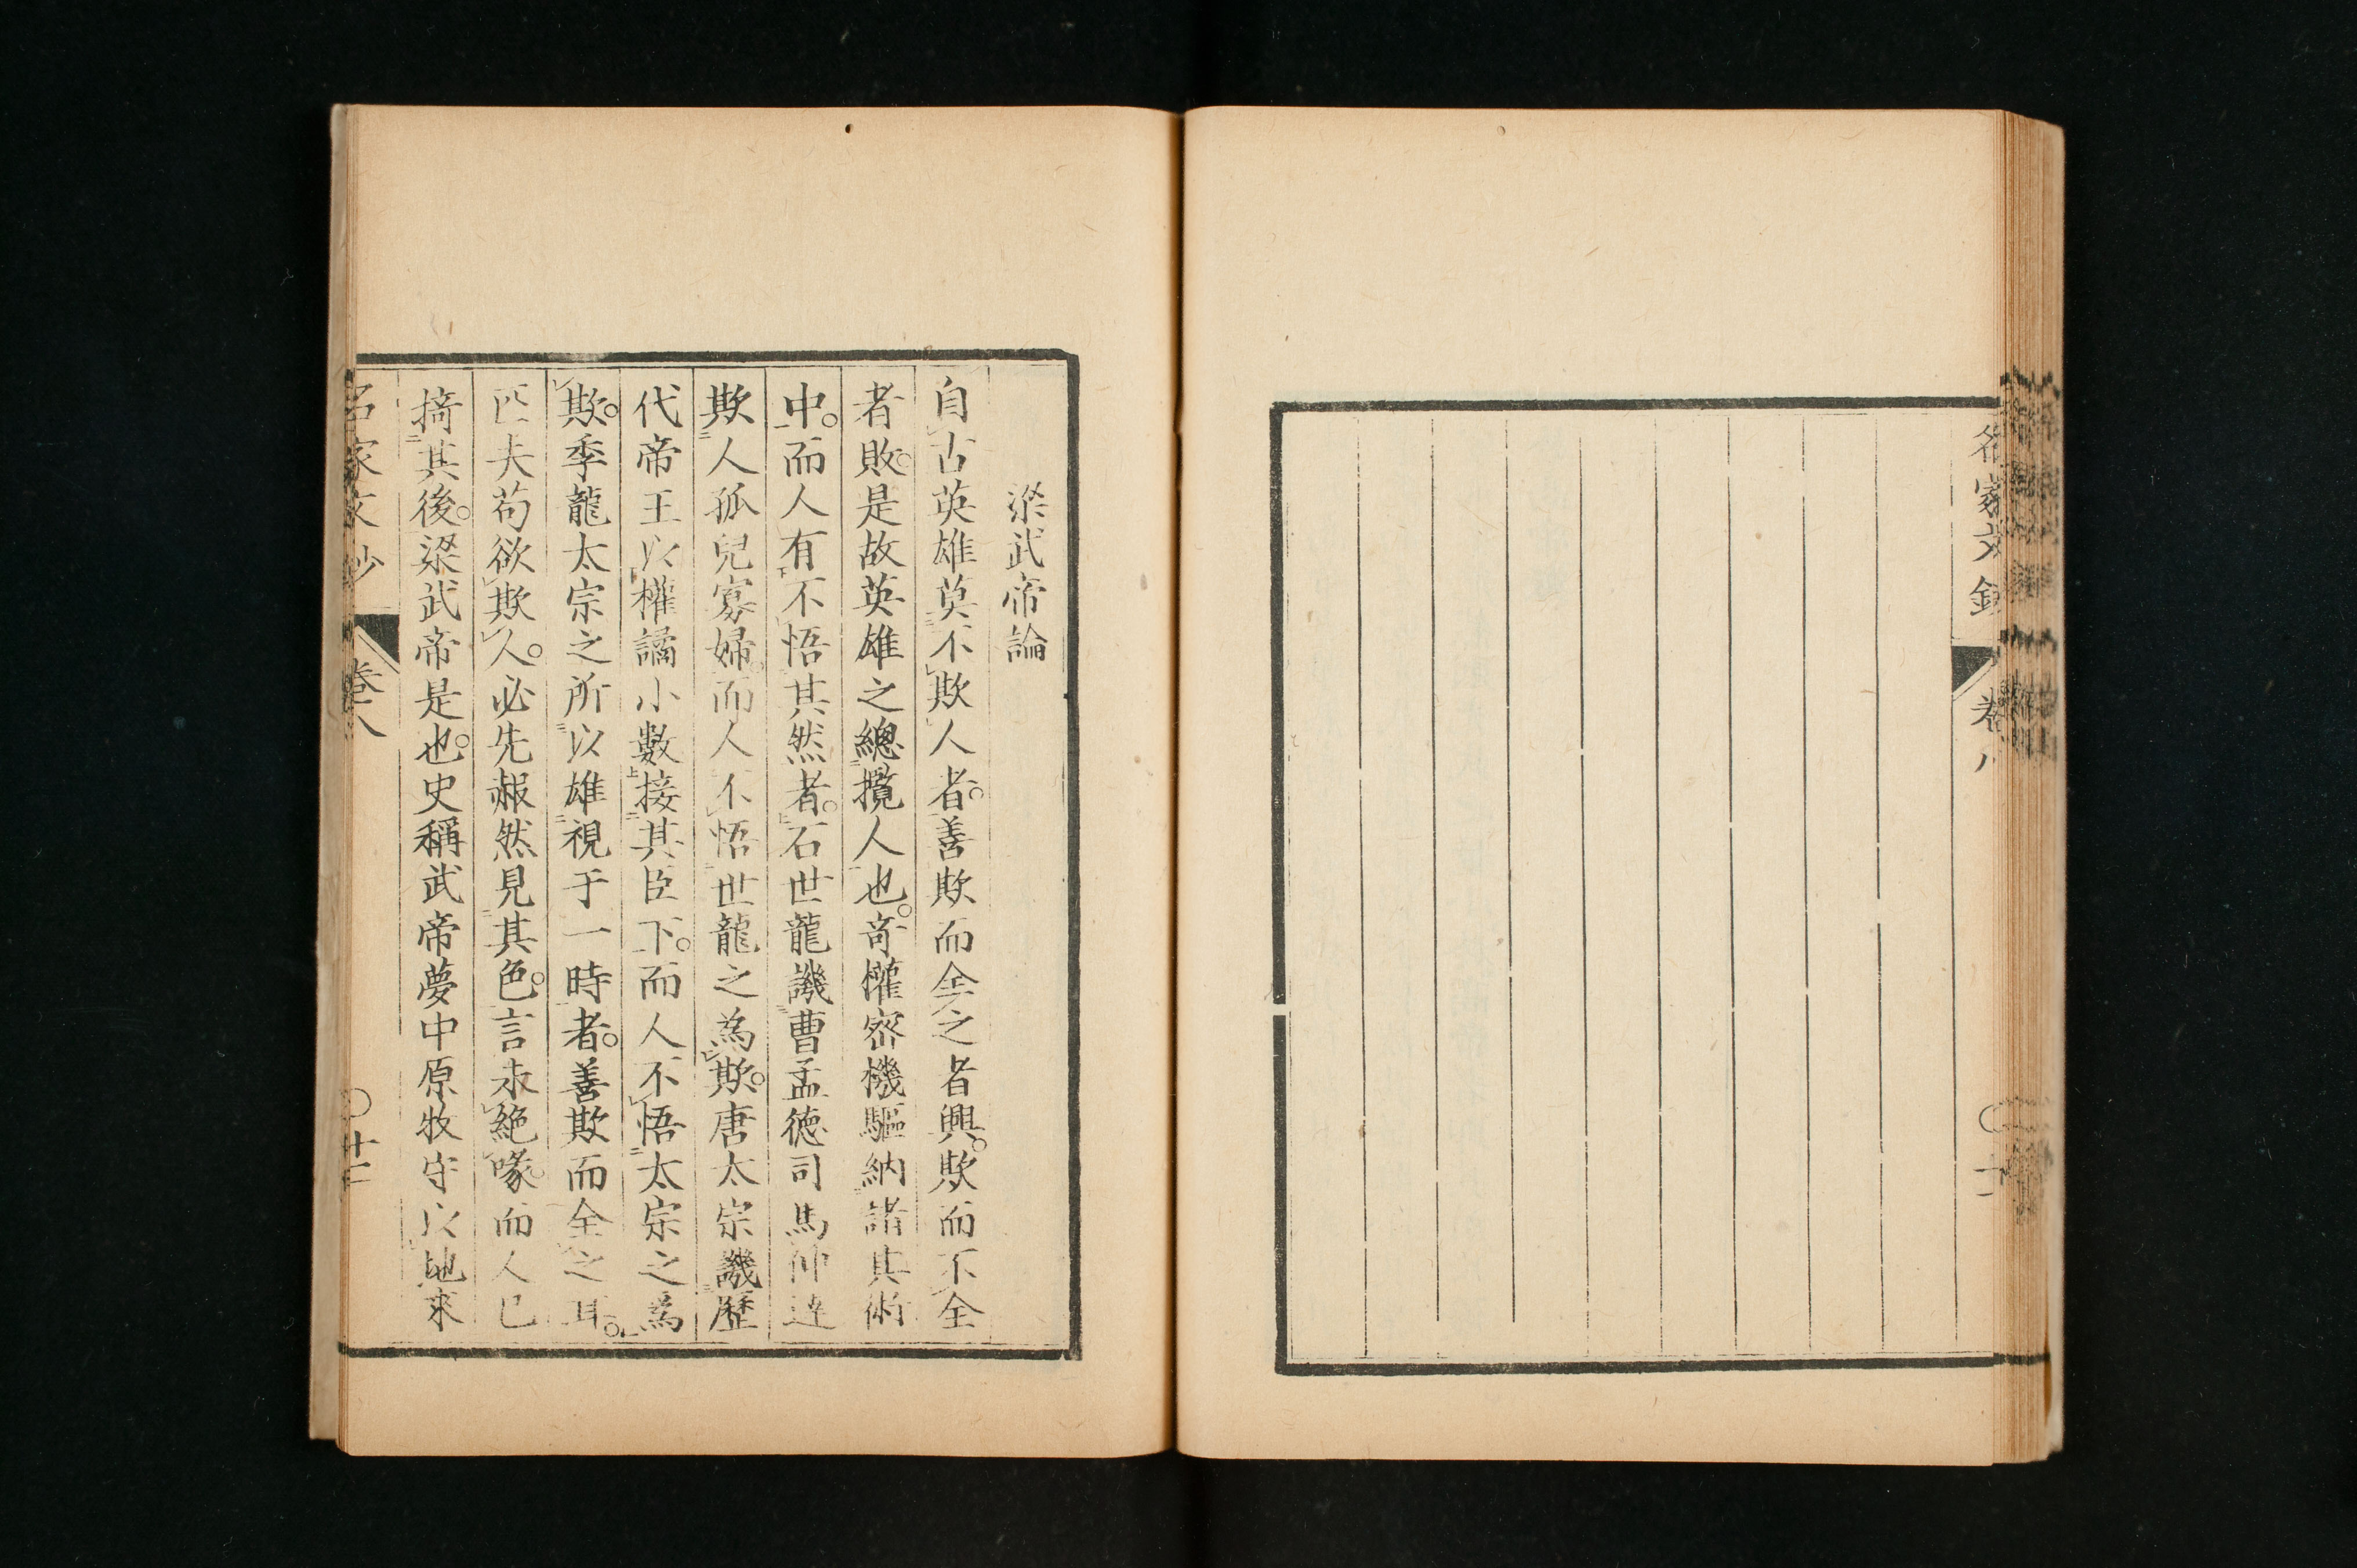 名家文鈔
卷八
梁武帝論
自古英雄莫不欺人者善欺而全之者興欺而不全
者敗是故英雄之總攬人也奇權密機驅納諸其術
中而人有不悟其然者石世龍譏曹孟德司馬仲達
欺人孤兒寡婦而人不悟世龍之為欺唐太宗譏歷
代帝王以權譎小數接其臣下而人不悟太宗之為
欺季龍太宗之所以雄視于一時者善欺而全之耳
匹夫苟欲欺人必先赧然見其色言未絕喙而人已
掎其後梁武帝是也史稱武帝夢中原牧守以地來
名家文鈔
卷八